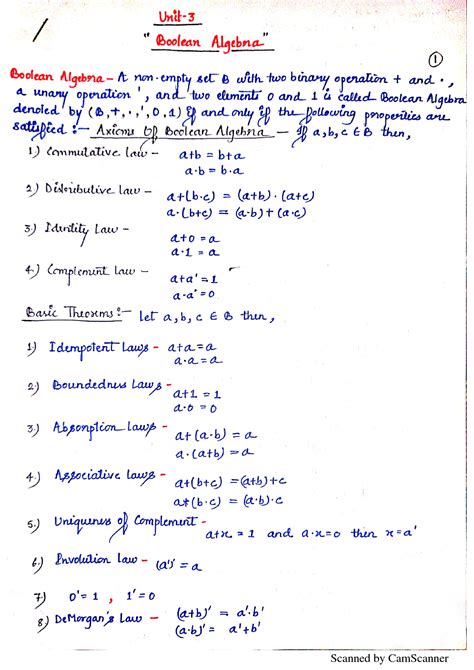 Unit-3
"Boolean Algebra"
1
Boolean Algebra - A non-empty set B with two binary operation + and ·,
a unary operation ', and two elements 0 and 1 is called Boolean Algebra
denoted by (B, +, ·, ', 0, 1) If and only if the following properties are
satisfied :- Axioms Of Boolean Algebra - If a, b, c ∈ B then,
1) Commutative law - a+b = b+a
a·b = b·a
2) Distributive law - a+(b·c) = (a+b)·(a+c)
a·(b+c) = (a·b)+(a·c)
3) Identity law - a+0 = a
a·1 = a
4) Complement law - a+a' = 1
a·a' = 0
Basic Theorems :- let a, b, c ∈ B then,
1) Idempotent Laws - a+a = a
a·a = a
2) Boundedness Laws - a+1 = 1
a·0 = 0
3) Absorption Laws - a+(a·b) = a
a·(a+b) = a
4) Associative laws - a+(b+c) = (a+b)+c
a+(b·c) = (a·b)·c
5.) Uniqueness of Complement - a+x = 1 and a·x=0 then x=a'
6.) Involution Law - (a')' = a
7) 0' = 1 , 1' = 0
8) DeMorgan's Law - (a+b)' = a'·b'
(a·b)' = a'+b'
Scanned by CamScanner